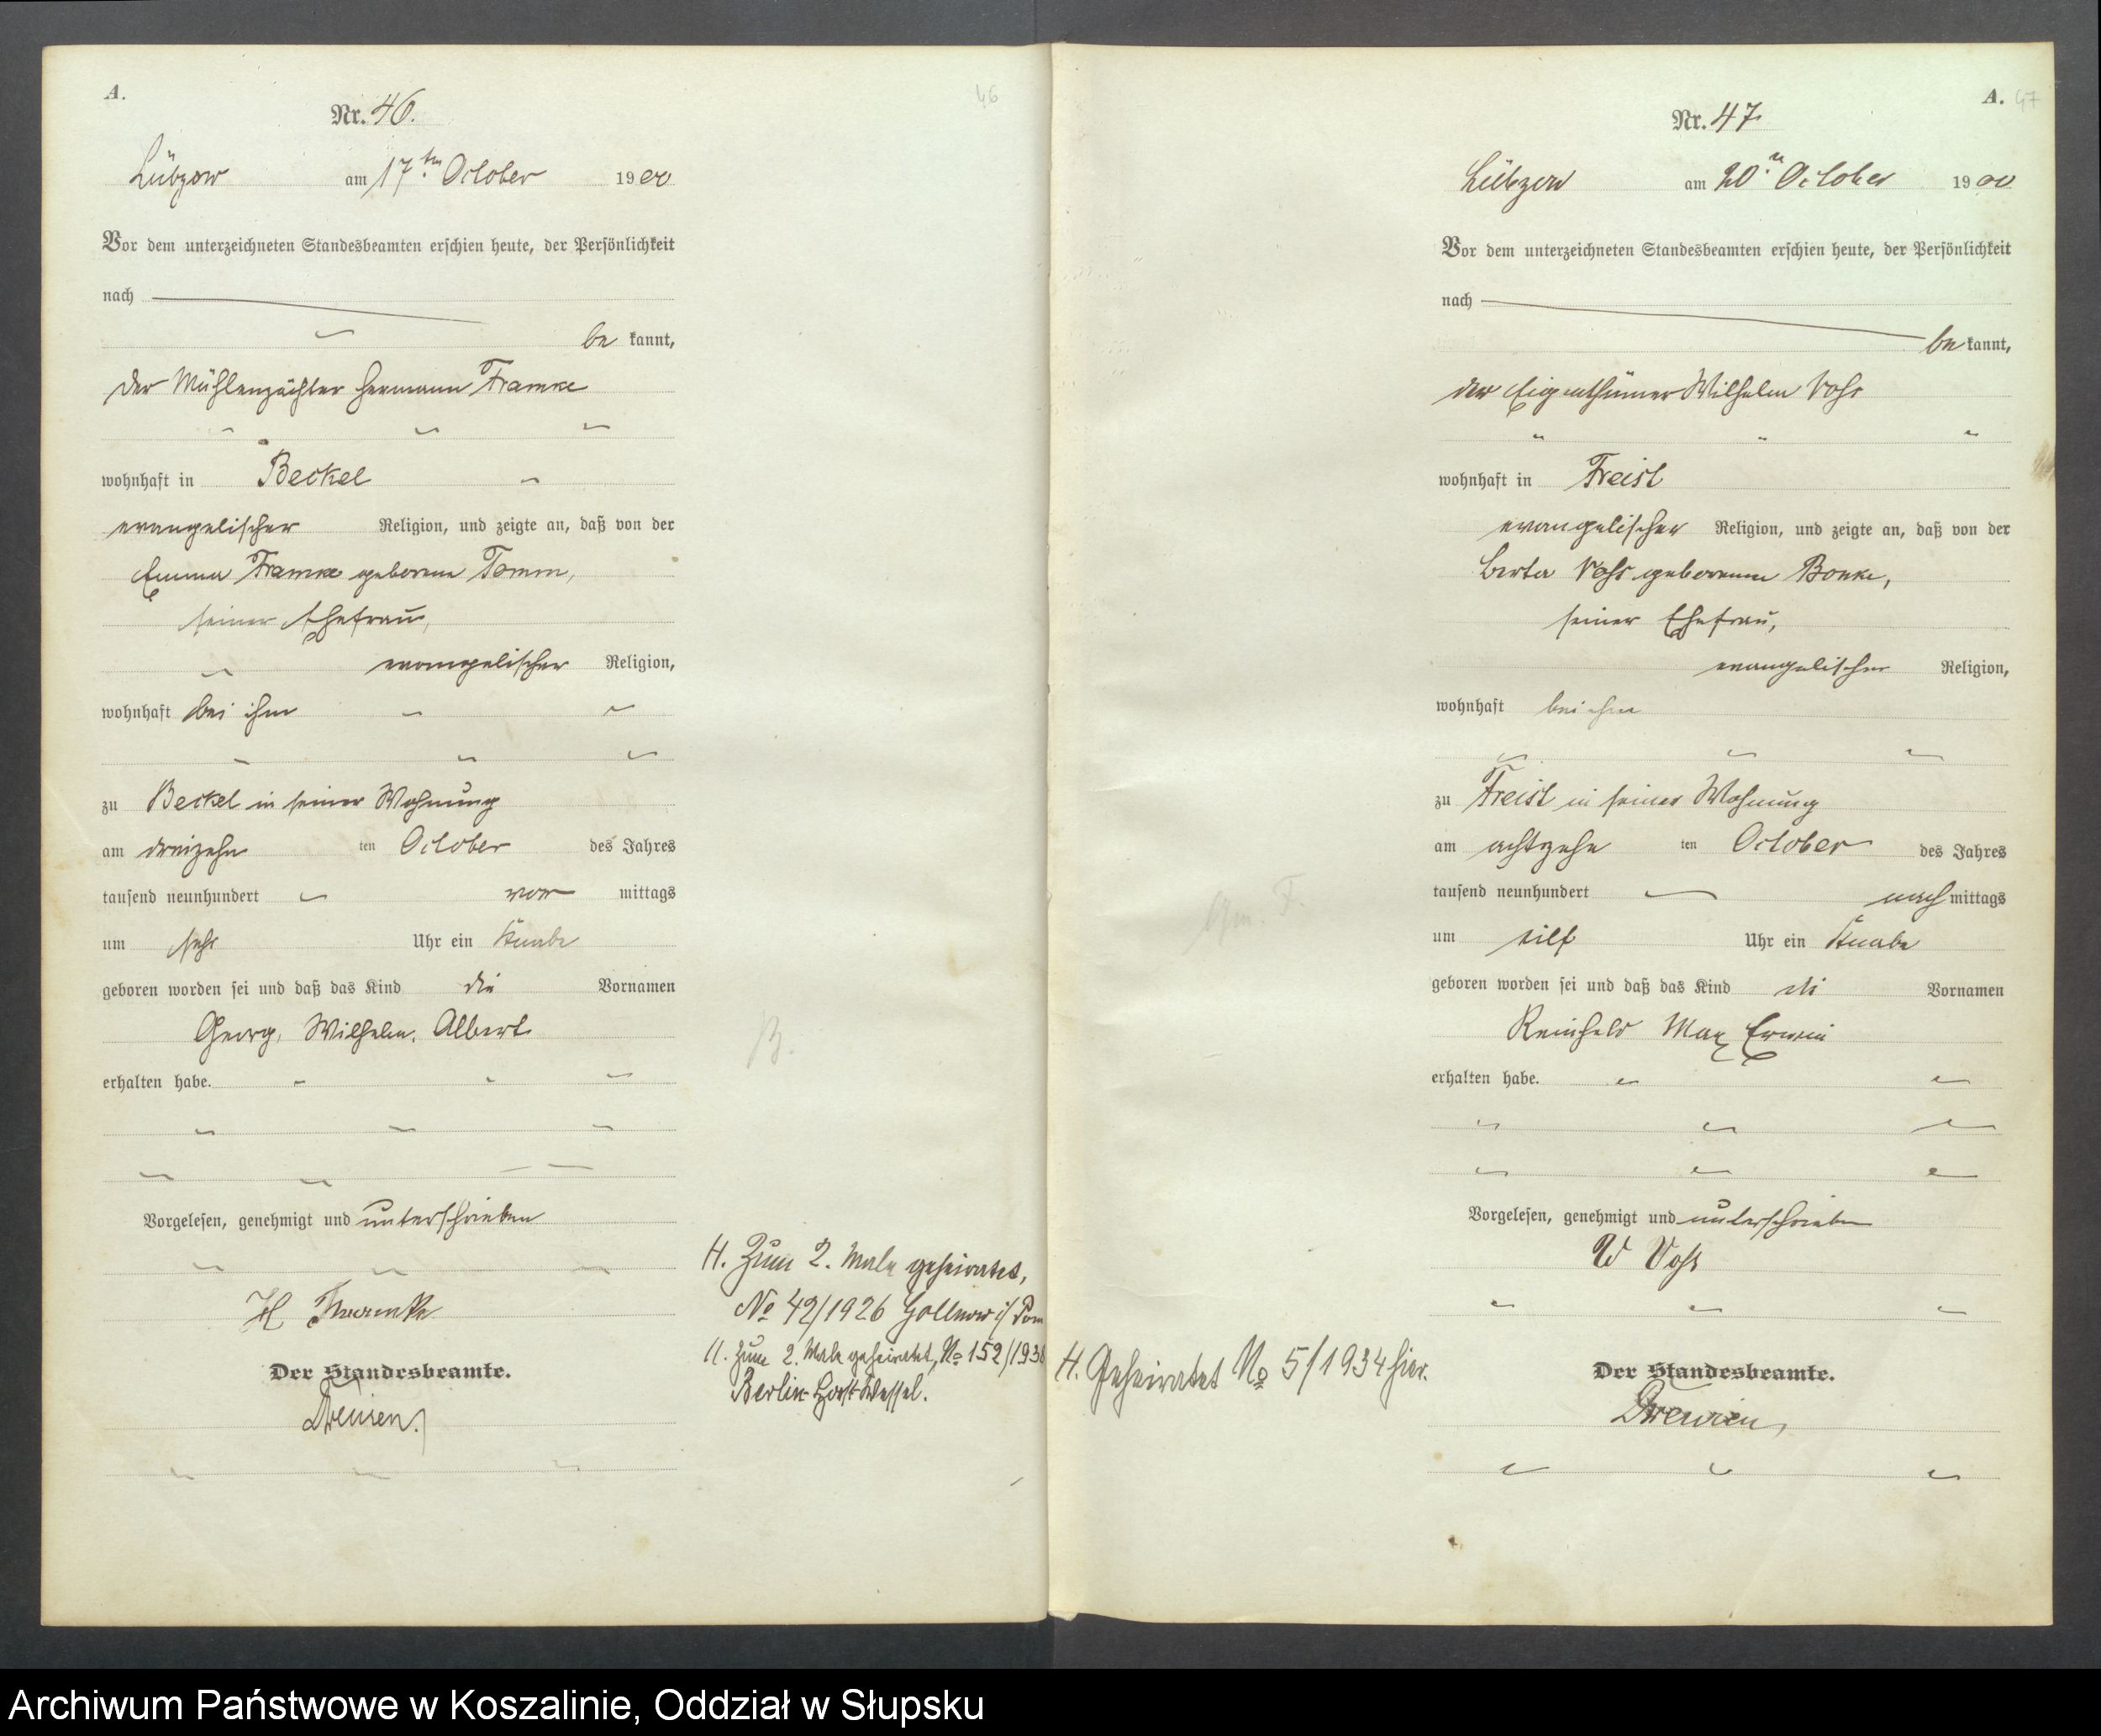 A.
46
Nr. 46.
Lübzow am 17ten October 1900
Vor dem unterzeichneten Standesbeamten erschien heute, der Persönlichkeit
nach
bekannt,
der Mühlenpächter Hermann Framke
wohnhaft in Beckel
evangelischer Religion, und zeigte an, daß von der
Emma Framke geborene Tamm,
seiner Ehefrau,
evangelischer Religion,
wohnhaft bei ihm
zu Beckel in seiner Wohnung
am dreizehn ten October des Jahres
tausend neunhundert vor mittags
um sechs Uhr ein Knabe
geboren worden sei und daß das Kind die Vornamen
Georg, Wilhelm, Albert
erhalten habe.
Vorgelesen, genehmigt und unterschrieben
H Framke
Der Standesbeamte.
B.
H. Zum 2. Male geheiratet,
No 42/1926 Gollnow i/ Pom
H. Zum 2. Male geheiratet, No 152/1938
Berlin-Horst-Wessel.
A. 47
Nr. 47
Lübzow am 20n October 1900
Vor dem unterzeichneten Standesbeamten erschien heute, der Persönlichkeit
nach
bekannt,
der Eigenthümer Wilhelm Voß
wohnhaft in Freist
evangelischer Religion, und zeigte an, daß von der
Berta Voß geborenen Bonke,
seiner Ehefrau,
evangelischer Religion,
wohnhaft bei ihm
zu Freist in seiner Wohnung
am achtzehn ten October des Jahres
tausend neunhundert nachmittags
um eilf Uhr ein Knabe
geboren worden sei und daß das Kind die Vornamen
Reinhold Max Erwin
erhalten habe.
Vorgelesen, genehmigt und unterschrieben
W Voß
H. Geheiratet No 5/1934 hier.
Der Standesbeamte.
Archiwum Państwowe w Koszalinie, Oddział w Słupsku